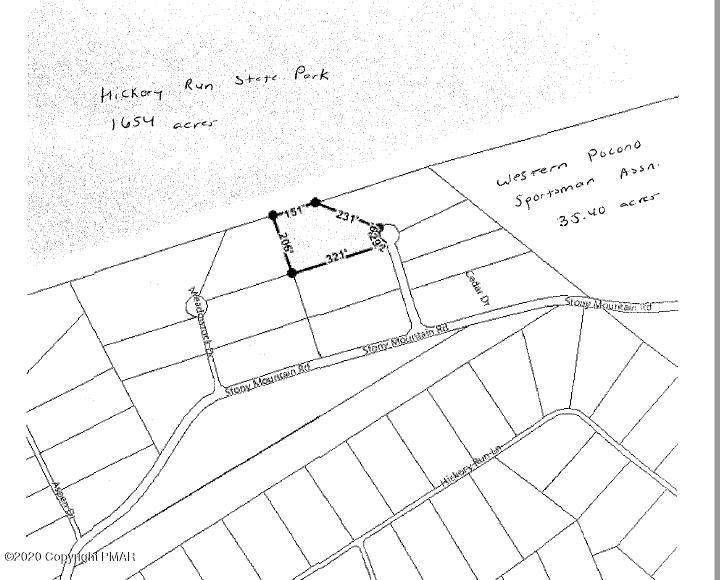 Hickory Run State Park
1654 acres
Western Pocono
Sportsman Assn.
35.40 acres
151'
231'
206'
321'
Cedar Dr
Stony Mountain Rd
Stony Mountain Rd
Stony Mountain Rd
Hickory Run Ln
Aspen Dr
©2020 Copyright PMAR